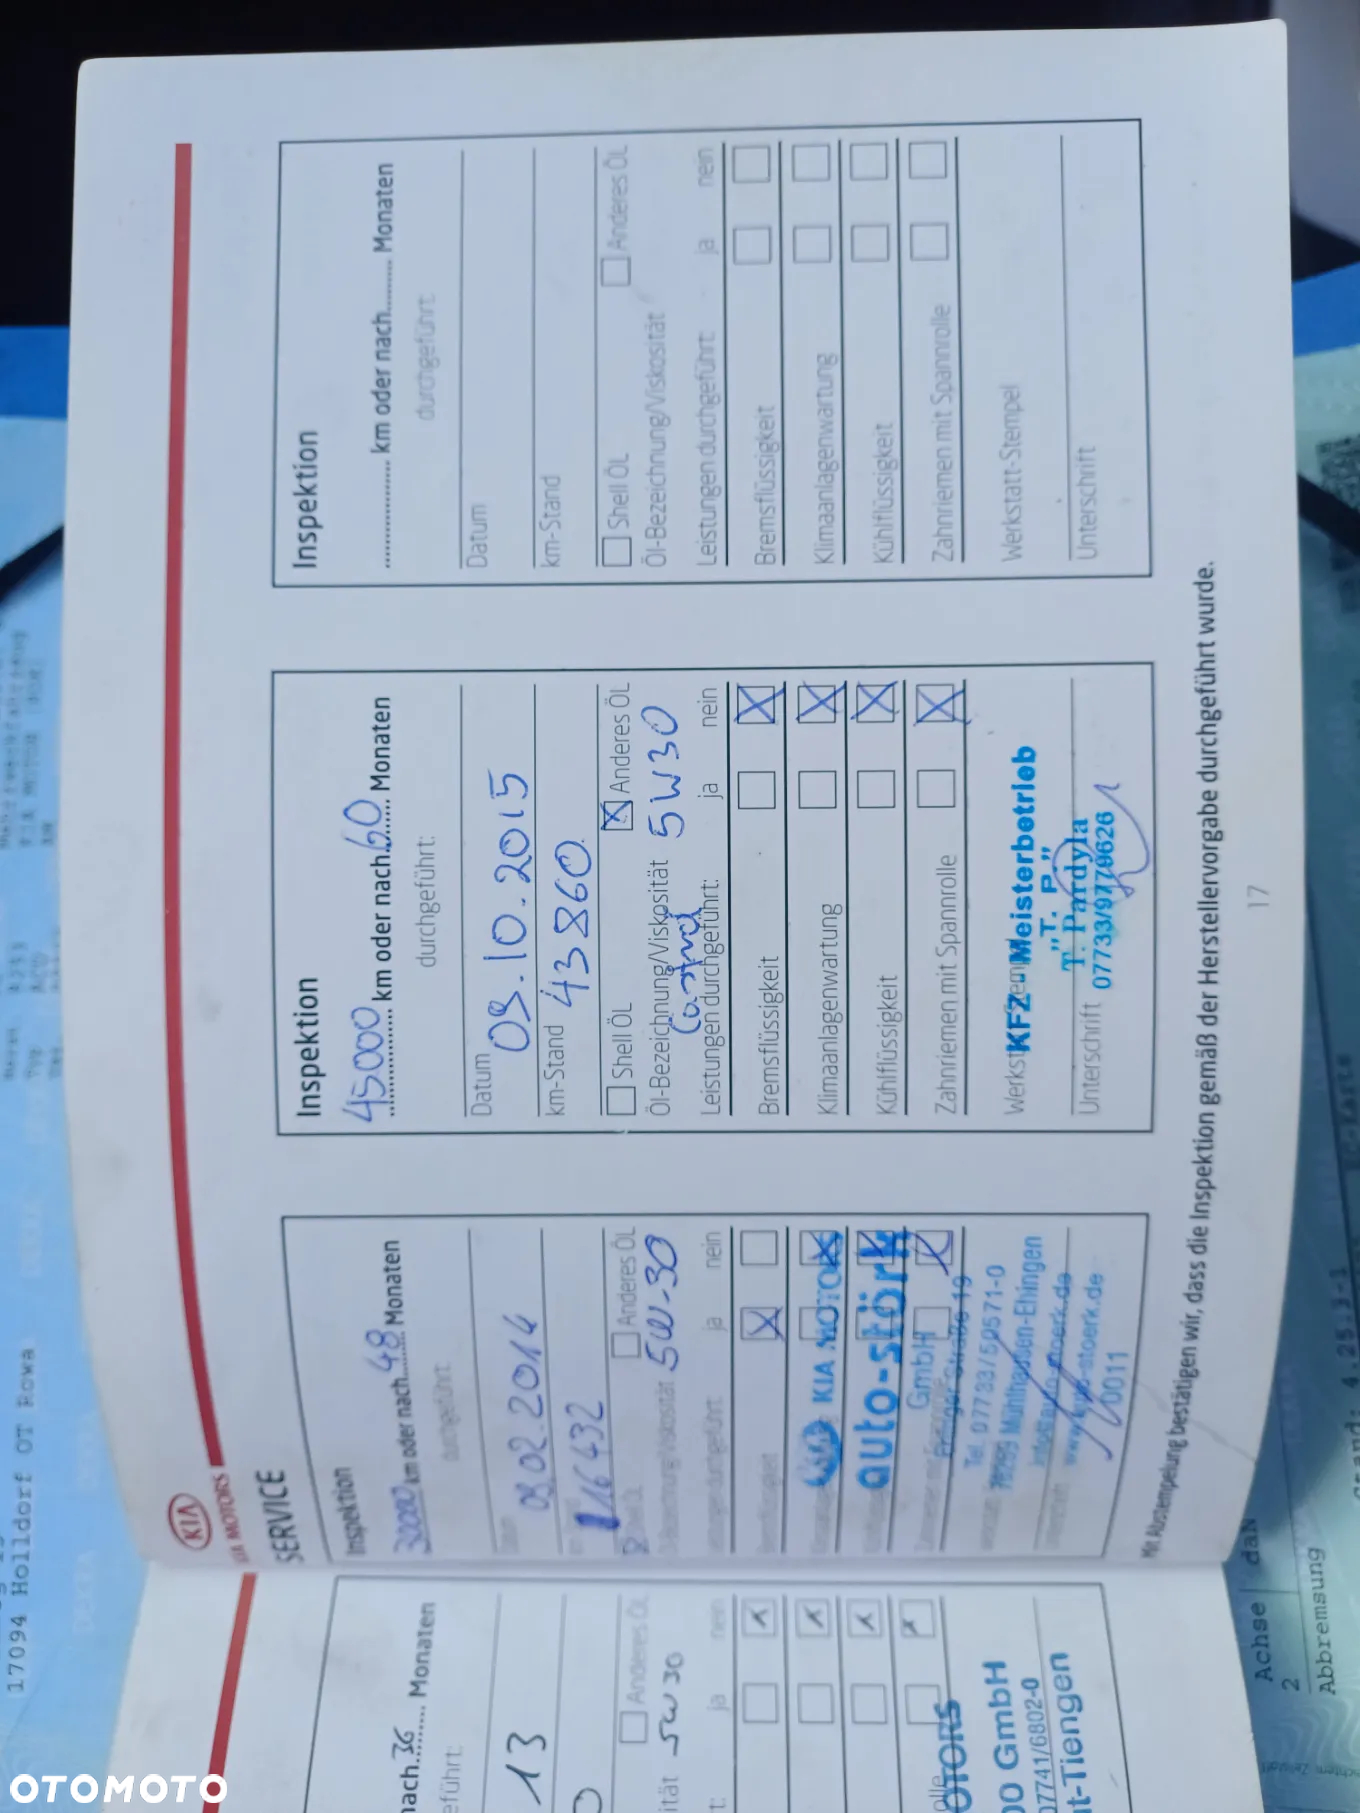 KIA
KIA MOTORS
SERVICE
Inspektion
30000 km oder nach 48 Monaten
durchgeführt:
Datum
03.02.2014
16432
Anderes ÖL
Öl-Bezeichnung/Viskosität 5W-30
Leistungen durchgeführt: ja nein
Bremsflüssigkeit
KIA MOTORS
auto-störk
GmbH
Tel. 07733/50571-0
78259 Mühlhausen-Ehingen
0011
Inspektion
45000 km oder nach 60 Monaten
durchgeführt:
Datum
09.10.2015
km-Stand 43860
Shell ÖL Anderes ÖL
Öl-Bezeichnung/Viskosität 5W30
Castrol
Leistungen durchgeführt: ja nein
Bremsflüssigkeit
Klimaanlagenwartung
Kühlflüssigkeit
Zahnriemen mit Spannrolle
KFZ - Meisterbetrieb
"T. P."
T. Pardyla
07733/9779626
Unterschrift
Inspektion
km oder nach Monaten
durchgeführt:
Datum
km-Stand
Shell ÖL Anderes ÖL
Öl-Bezeichnung/Viskosität
Leistungen durchgeführt: ja nein
Bremsflüssigkeit
Klimaanlagenwartung
Kühlflüssigkeit
Zahnriemen mit Spannrolle
Werkstatt-Stempel
Unterschrift
Mit Abstempelung bestätigen wir, dass die Inspektion gemäß der Herstellervorgabe durchgeführt wurde.
17
nach 36 Monaten
13
Anderes ÖL
5W30
ja nein
GmbH
07741/6802-0
t-Tiengen
17094 Holldorf OT Rowa
Achse
2
Abbremsung
OTOMOTO